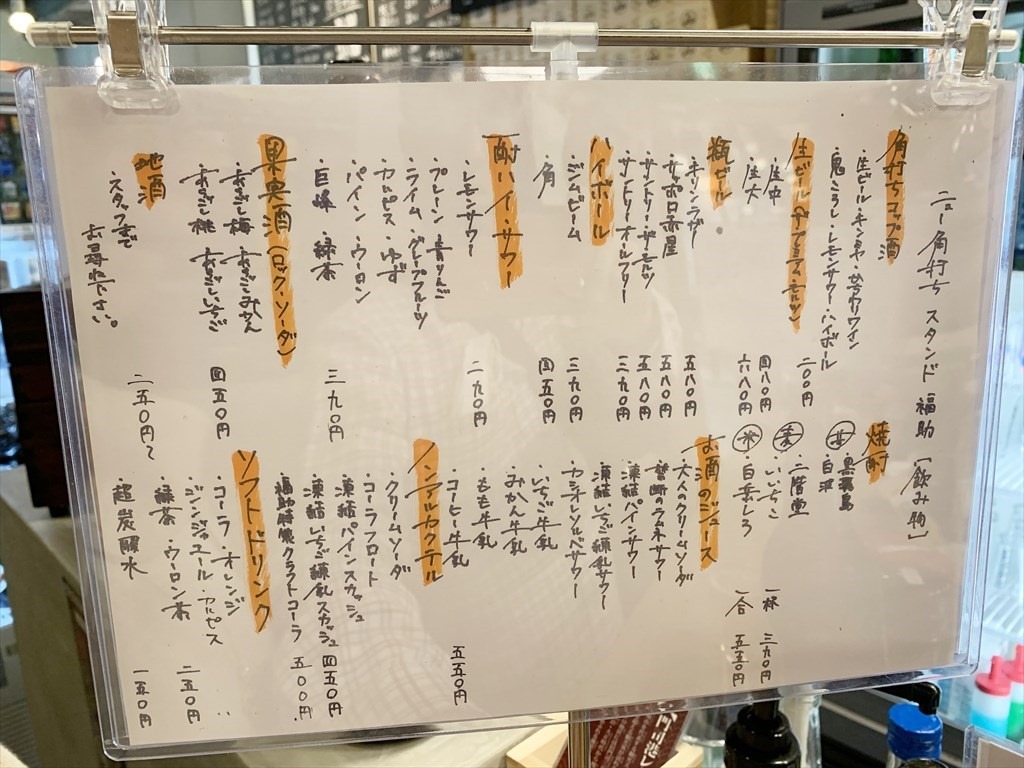 ニュー角打ち スタンド 福助 「飲み物」
角打ちコップ酒
・生ビール・キンミヤ・かちわりワイン
・鬼ころし・レモンサワー・ハイボール
二〇〇円
生ビール(プレミアム・モルツ)
・生中 四八〇円
・生大 六八〇円
瓶ビール
・キリンラガー 五八〇円
・サッポロ赤星 五八〇円
・サントリー・ザ・モルツ 五八〇円
・サントリー・オールフリー 三九〇円
ハイボール
・ジムビーム 三九〇円
・角 四五〇円
酎ハイ・サワー
・レモンサワー 二九〇円
・プレーン・青りんご
・ライム・グレープフルーツ
・カルピス・ゆず
・パイン・ウーロン
・巨峰・緑茶
三九〇円
果実酒(ロック・ソーダ)
・あらごし梅・あらごしみかん
・あらごし桃・あらごしいちご
四五〇円
地酒
・スタッフまで
お尋ね下さい。
二五〇円〜
焼酎
芋 ・黒霧島
・白波
麦 ・二階堂
・いいちこ
米 ・白岳しろ
一杯 三九〇円
一合 五五〇円
お酒のジュース
・大人のクリームソーダ
・禁断のラムネサワー
・凍結パインサワー
・凍結いちご練乳サワー
・カシオレソルベサワー
・いちご牛乳
・みかん牛乳
・もも牛乳
・コーヒー牛乳
五五〇円
ノンアルカクテル
・クリームソーダ
・コーラフロート
・凍結パインスカッシュ
・凍結いちご練乳スカッシュ 四五〇円
・福助特製クラフトコーラ 五〇〇円
ソフトドリンク
・コーラ・オレンジ
・ジンジャエール・カルピス
・緑茶・ウーロン茶 二五〇円
・超炭酸水 一五〇円